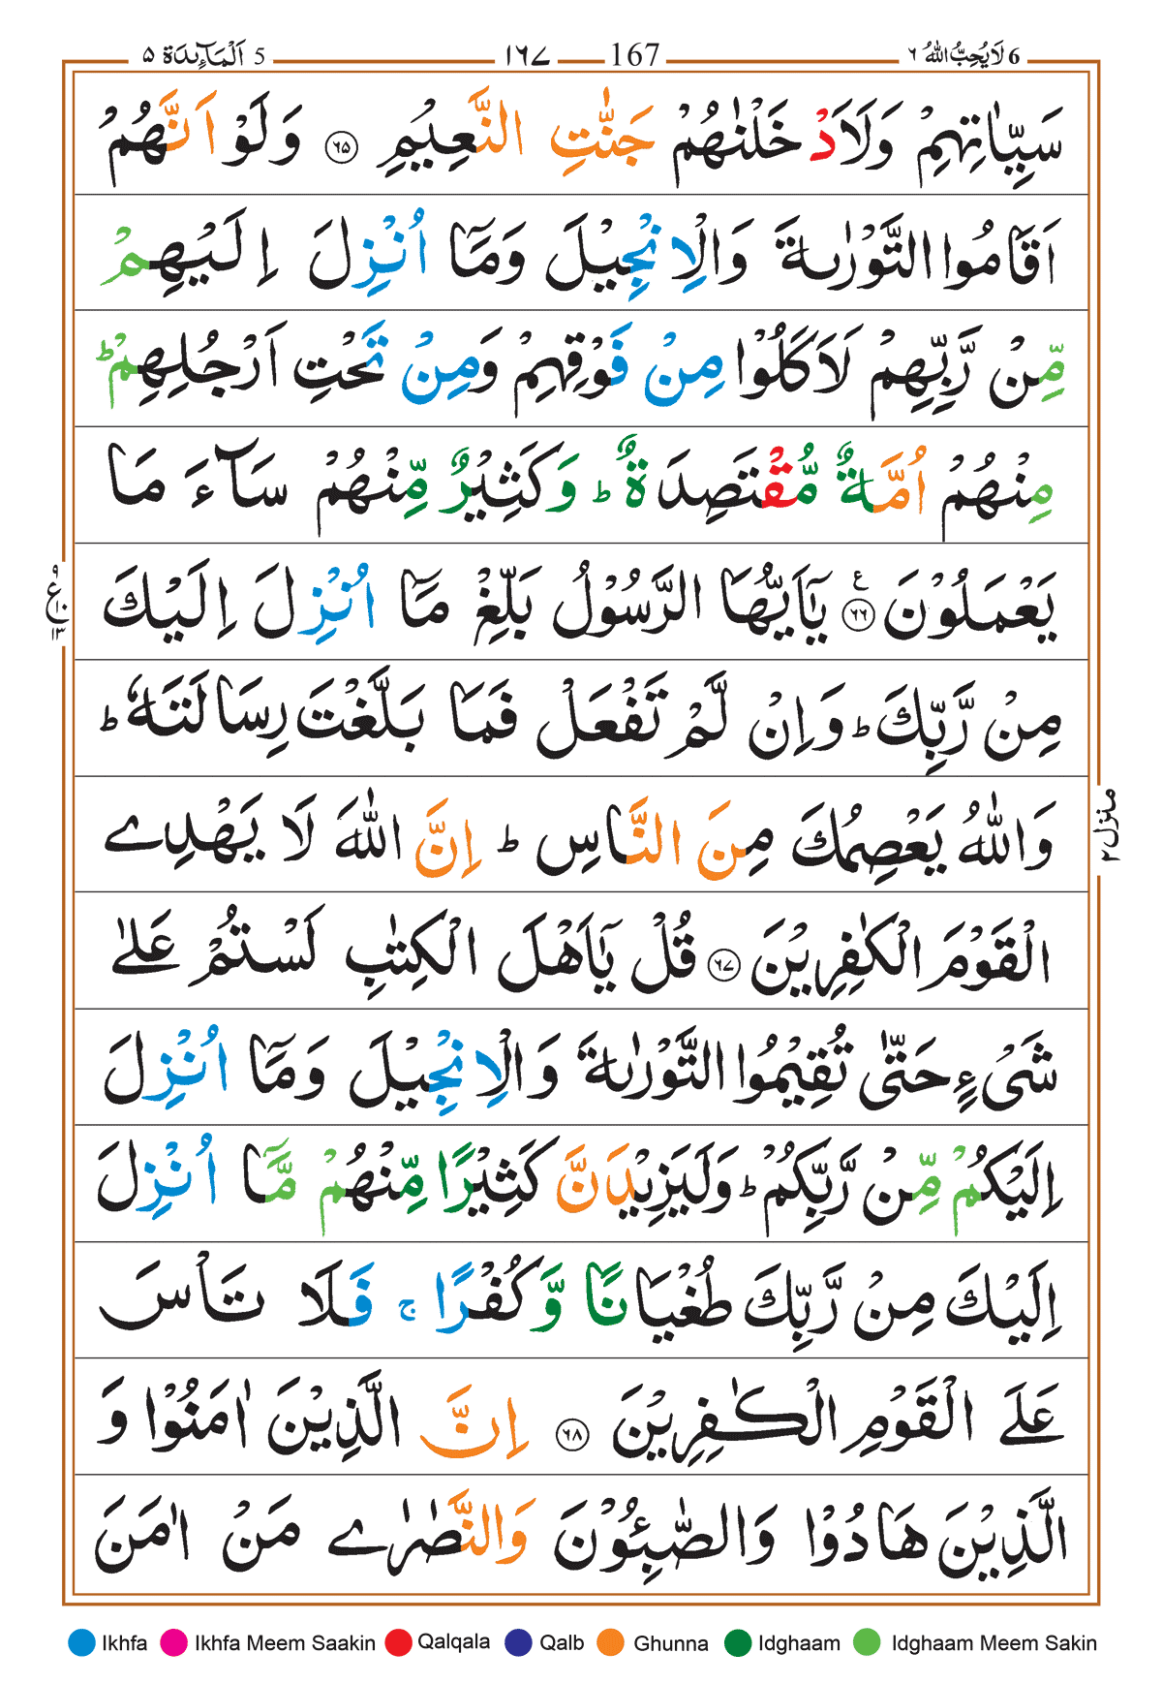 6 لَا یُحِبُّ اللهُ ٦ 167 ١٦٧ 5 اَلْمَآئِدَة ٥
سَیِّاٰتِهِمْ وَلَاَدْخَلْنٰهُمْ جَنّٰتِ النَّعِیْمِ ﴿٦٥﴾ وَلَوْ اَنَّهُمْ
اَقَامُوا التَّوْرٰىةَ وَالْاِنْجِیْلَ وَمَاۤ اُنْزِلَ اِلَیْهِمْ
مِّنْ رَّبِّهِمْ لَاَكَلُوْا مِنْ فَوْقِهِمْ وَمِنْ تَحْتِ اَرْجُلِهِمْ ؕ
مِنْهُمْ اُمَّةٌ مُّقْتَصِدَةٌ ؕ وَكَثِیْرٌ مِّنْهُمْ سَآءَ مَا
یَعْمَلُوْنَ ﴿٦٦﴾ ع یٰۤاَیُّهَا الرَّسُوْلُ بَلِّغْ مَاۤ اُنْزِلَ اِلَیْكَ
مِنْ رَّبِّكَ ؕ وَاِنْ لَّمْ تَفْعَلْ فَمَا بَلَّغْتَ رِسَالَتَهٗ ؕ
وَاللهُ یَعْصِمُكَ مِنَ النَّاسِ ؕ اِنَّ اللهَ لَا یَهْدِے
الْقَوْمَ الْكٰفِرِیْنَ ﴿٦٧﴾ قُلْ یٰۤاَهْلَ الْكِتٰبِ لَسْتُمْ عَلٰے
شَیْءٍ حَتّٰی تُقِیْمُوا التَّوْرٰىةَ وَالْاِنْجِیْلَ وَمَاۤ اُنْزِلَ
اِلَیْكُمْ مِّنْ رَّبِّكُمْ ؕ وَلَیَزِیْدَنَّ كَثِیْرًا مِّنْهُمْ مَّاۤ اُنْزِلَ
اِلَیْكَ مِنْ رَّبِّكَ طُغْیَانًا وَّكُفْرًا ۚ فَلَا تَاْسَ
عَلَے الْقَوْمِ الْكٰفِرِیْنَ ﴿٦٨﴾ اِنَّ الَّذِیْنَ اٰمَنُوْا وَ
الَّذِیْنَ هَادُوْا وَالصّٰبِئُوْنَ وَالنَّصٰرٰے مَنْ اٰمَنَ
٩ ع ١٠ ١٣
منزل ٢
Ikhfa Ikhfa Meem Saakin Qalqala Qalb Ghunna Idghaam Idghaam Meem Sakin